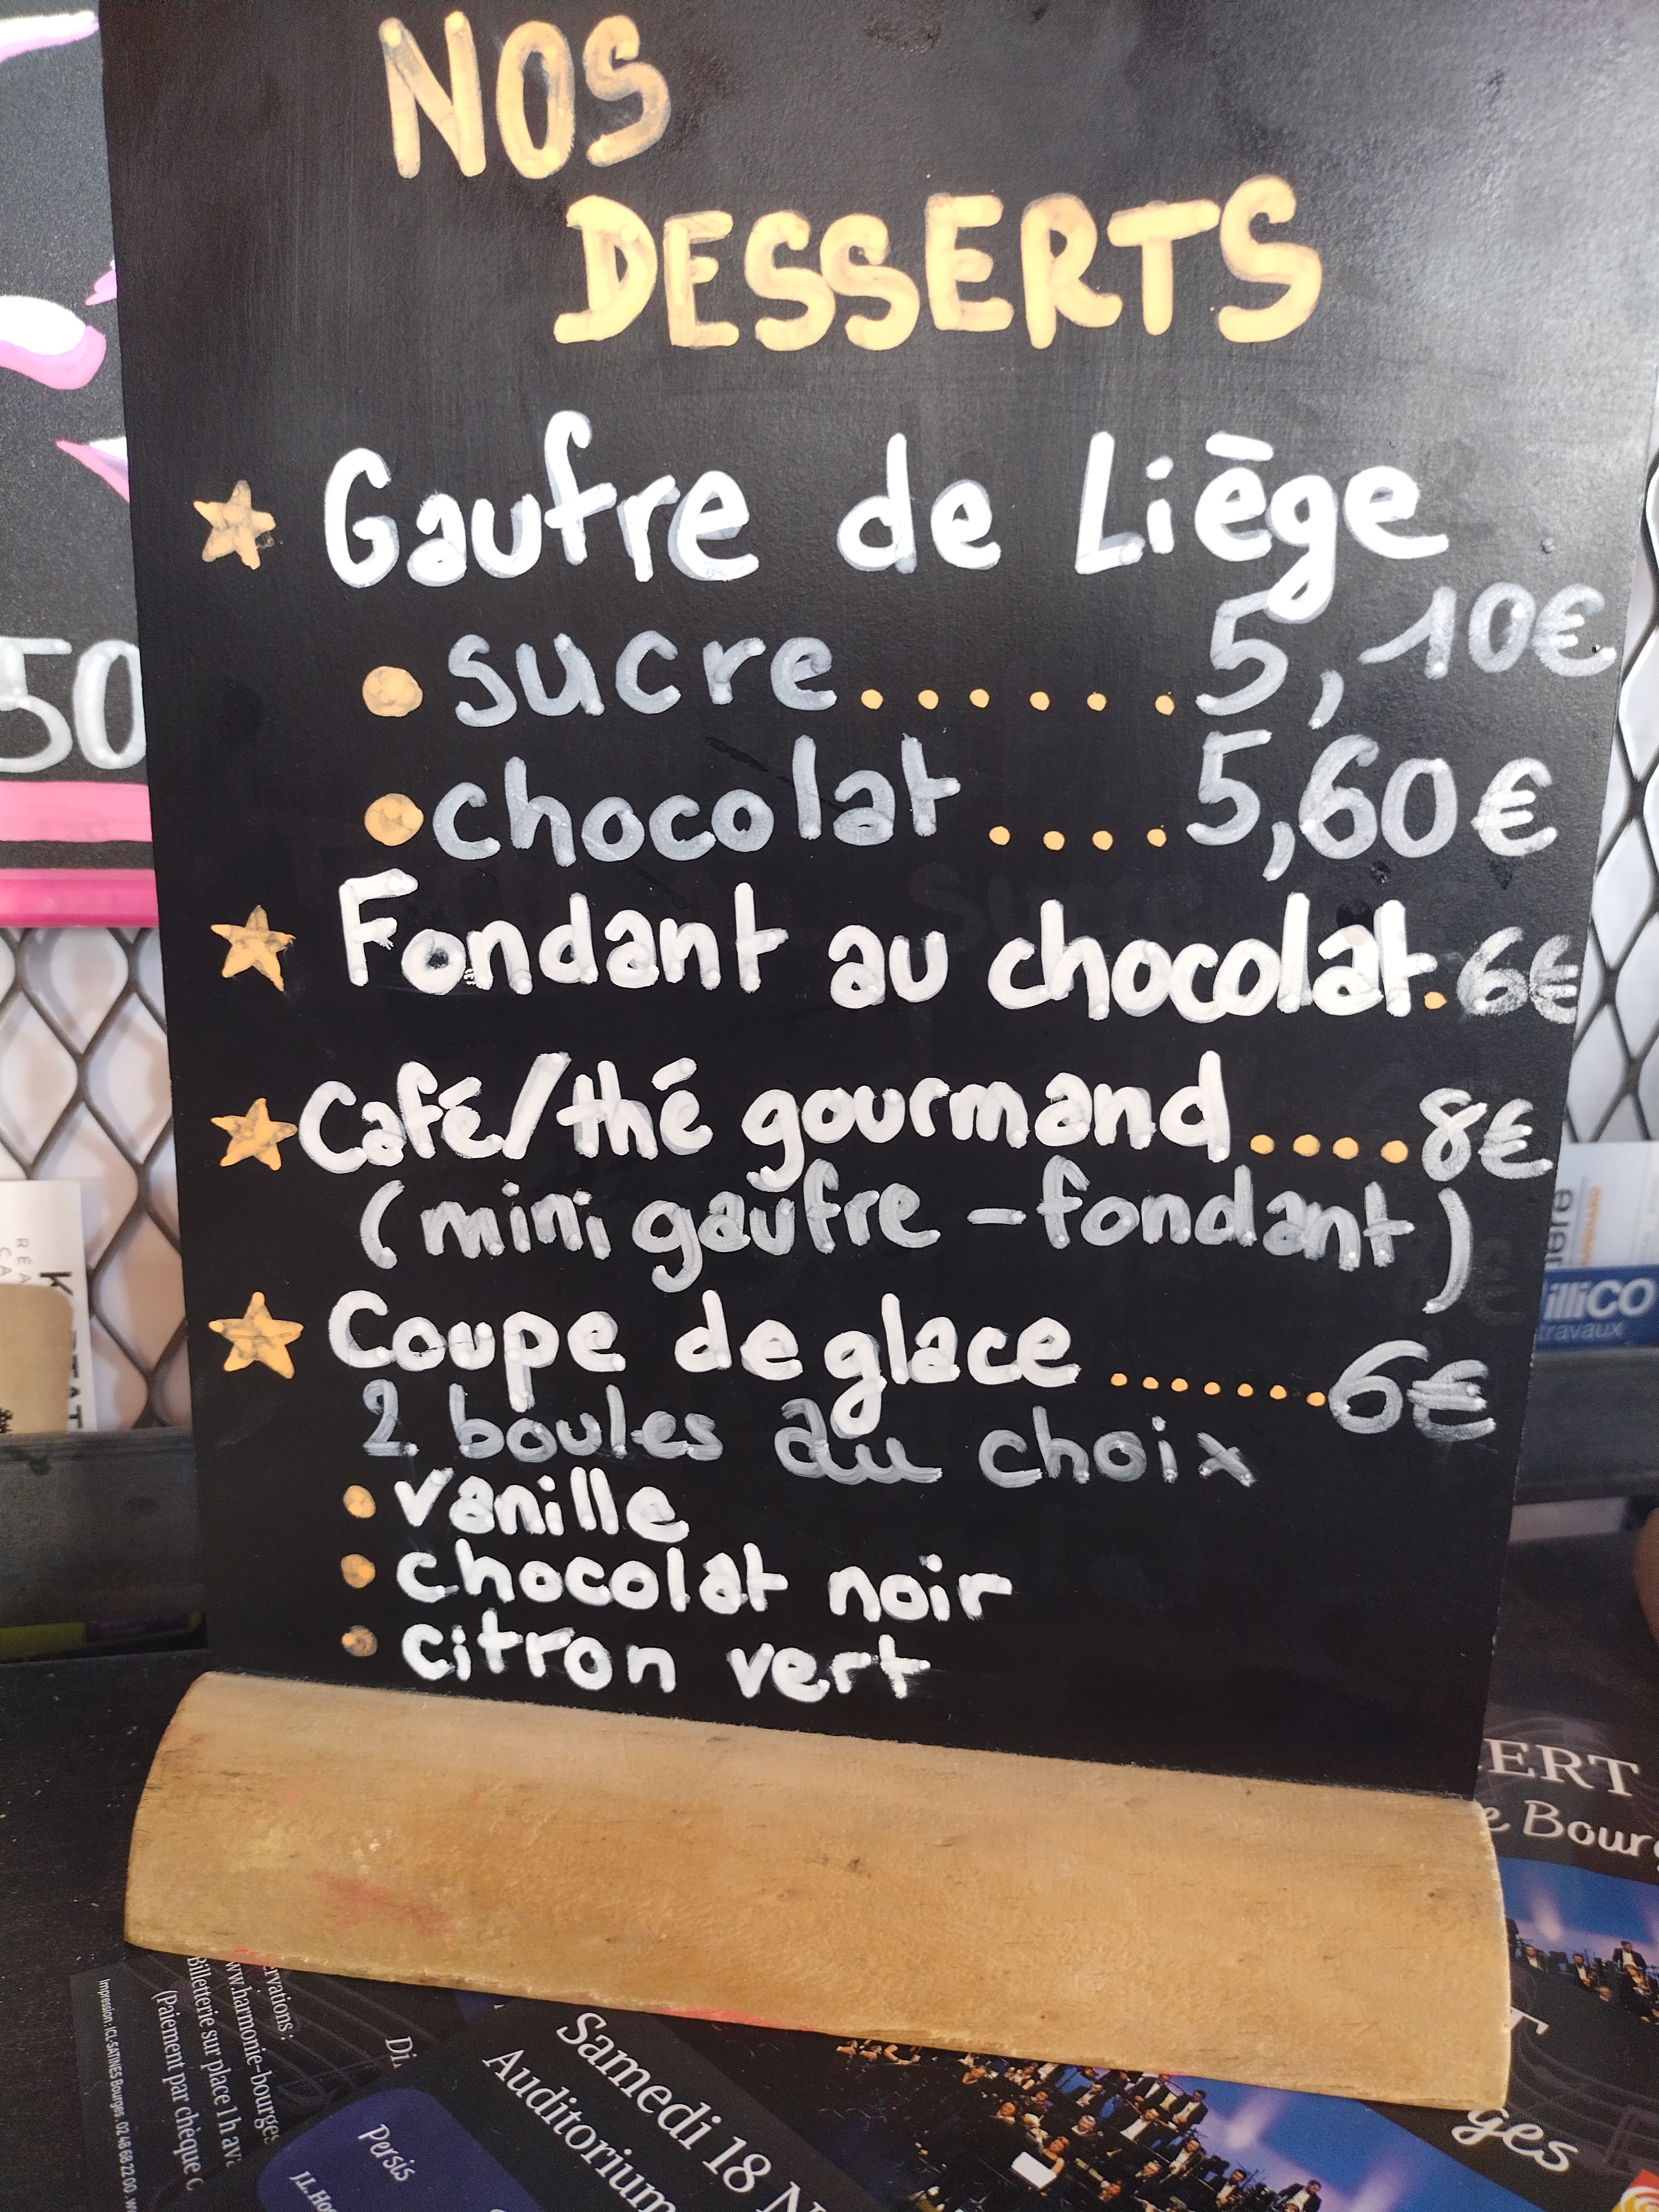 NOS
DESSERTS
Gaufre de Liège
sucre......5,10€
chocolat....5,60€
Fondant au chocolat.6€
Café/thé gourmand....8€
(mini gaufre - fondant)
Coupe de glace.......6€
2 boules au choix
vanille
chocolat noir
citron vert
50
illico
travaux
ERT
e Bourg
ges
Samedi 18 N
Auditorium
Persis
ervations :
www.harmonie-bourges
Billetterie sur place 1h av
(Paiement par chèque
Impression : ICL-SATINES Bourges. 02 48 68 22 00